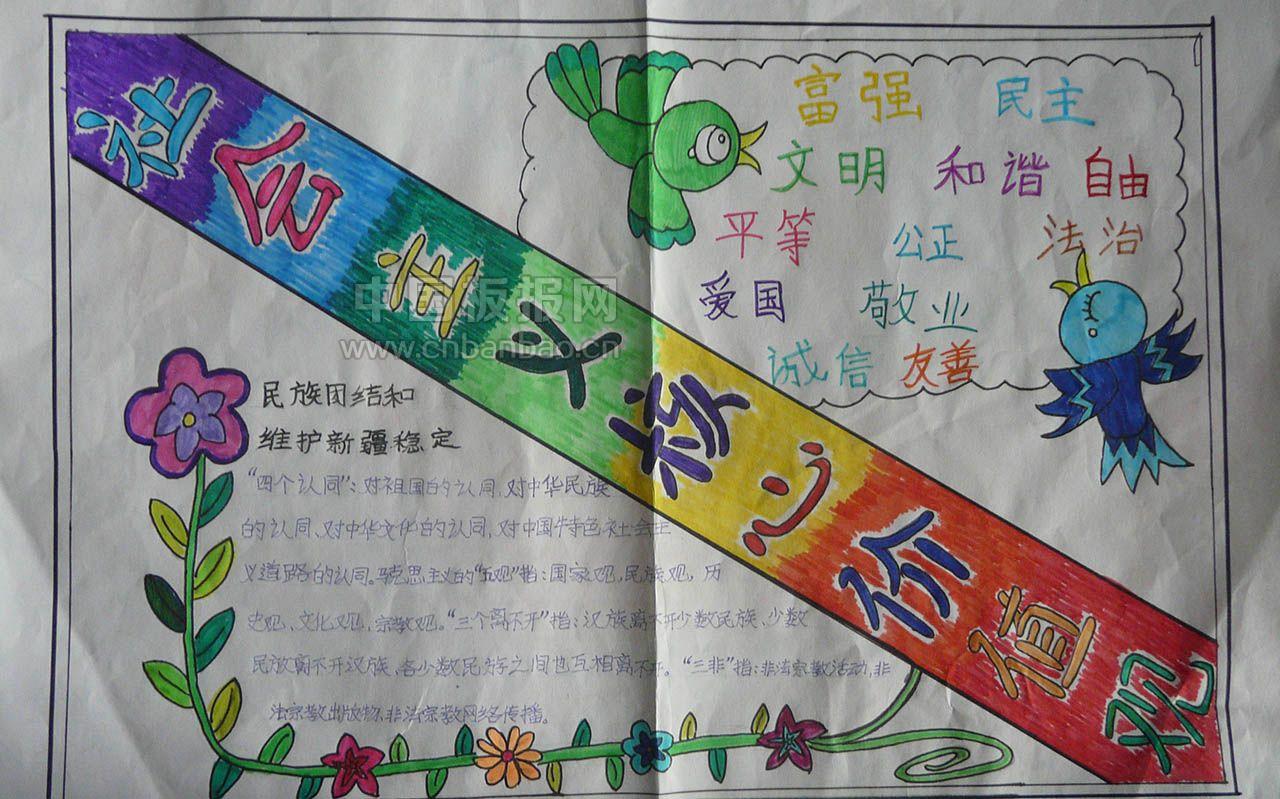 社会主义核心价值观
富强 民主
文明 和谐 自由
平等 公正 法治
爱国 敬业
诚信 友善
中国板报网
www.cnbanbao.cn
民族团结和
维护新疆稳定
“四个认同”：对祖国的认同，对中华民族
的认同、对中华文化的认同，对中国特色社会主
义道路的认同。马克思主义的“五观”指：国家观，民族观，历
史观、文化观、宗教观。“三个离不开”指：汉族离不开少数民族、少数
民族离不开汉族、各少数民族之间也互相离不开。“三非”指：非法宗教活动，非
法宗教出版物，非法宗教网络传播。